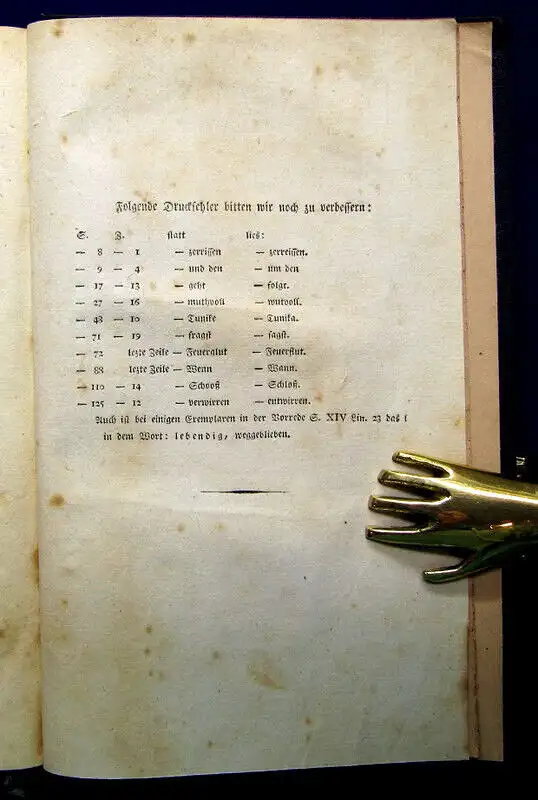 Folgende Druckfehler bitten wir noch zu verbessern:
S. Z. statt lies:
— 8 — 1 — zerrissen — zerreissen.
— 9 — 4 — und den — um den
— 17 — 13 — geht — folgt.
— 27 — 16 — muthvoll — wutvoll.
— 48 — 10 — Tunike — Tunika.
— 71 — 19 — fragst — sagst.
— 72 letzte Zeile — Feuerglut — Feuerflut.
— 88 letzte Zeile — Wenn — Wann.
— 110 — 14 — Schooß — Schloß.
— 125 — 12 — verwirren — entwirren.
Auch ist bei einigen Exemplaren in der Vorrede S. XIV Lin. 23 das l
in dem Wort: lebendig, weggeblieben.